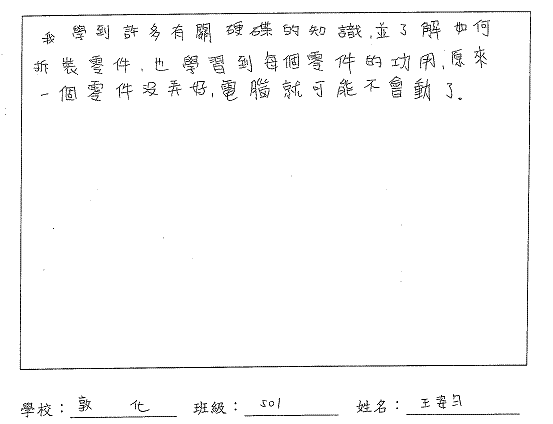 我學到許多有關硬碟的知識,並了解如何
拆裝零件,也學習到每個零件的功用,原來
一個零件沒弄好,電腦就可能不會動了.
學校：敦化 班級：501 姓名：王姿勻